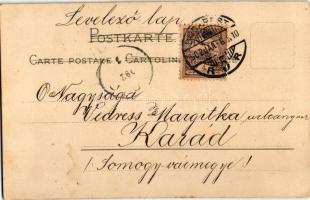 Levelező lap
POSTKARTE.
CARTE POSTALE CARTOLINA
Ő Nagysága
Vidress Margitka
Karád
(Somogy vármegye)